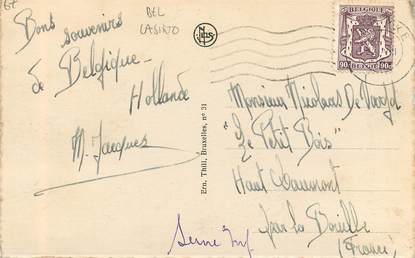 67
BEL
LASIRTO
Bons souvenirs
de Belgique -
Hollande
M. Jacques
Nels
Ern. Thill, Bruxelles, nº 31
BELGIQUE
90c 90c
Monsieur Nicolaos De
"Le Petit Bois"
Haut Caumont
par la Bouille
(France)
Seine Inf